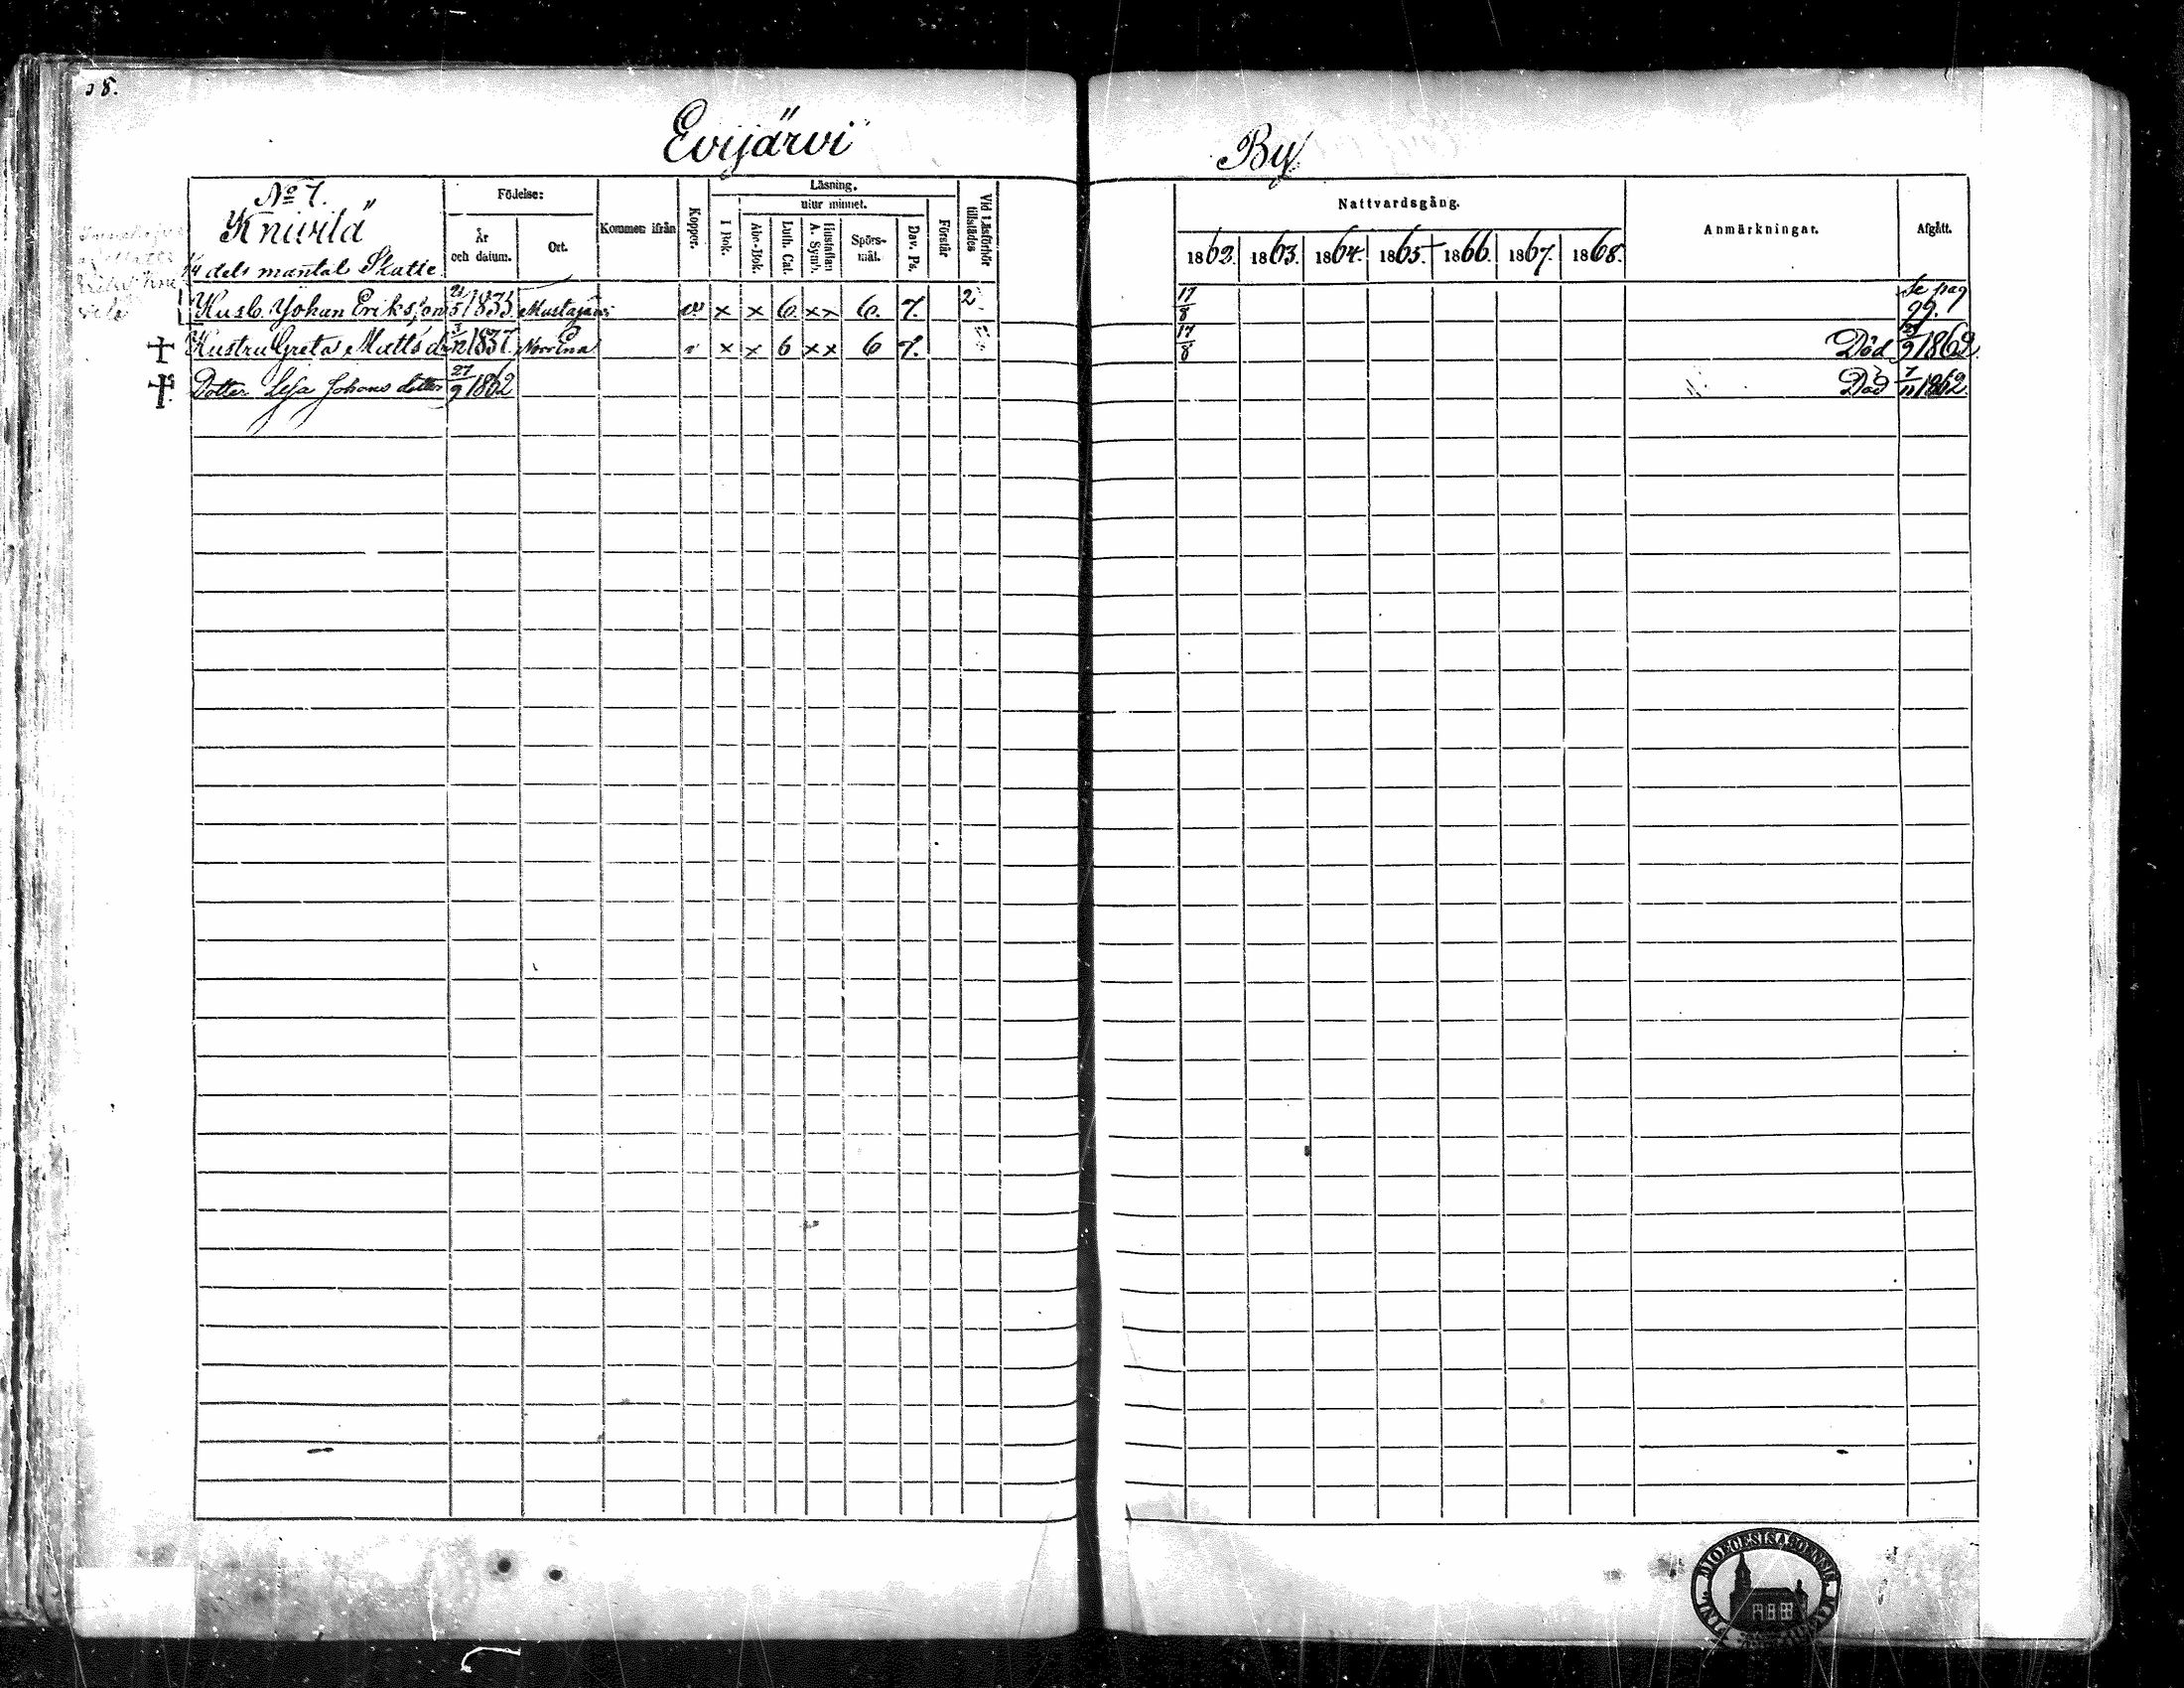 8.
Evijärvi By
No 7.
Knivilä
1/4 dels mantal Skatte
Födelse:
År och datum.
Ort.
Kommen ifrån
Koppor.
Läsning.
I Bok.
utur minnet.
Abc-Bok.
Luth. Cat.
Hustaflan A. Symb.
Spörs-mål.
Dav. Ps.
Förstår
Vid Läsförhör tillstädes
Nattvardsgång.
1862. 1863. 1864. 1865. 1866. 1867. 1868.
Anmärkningar.
Afgått.
Husb. Johan Eriksson 5/1835 Mustajärvi x x 6. xx 6. 7. 2 17/8 Se pag 99.
Hustru Greta Mattsd 3/12 1837. x x 6 xx 6 7. 17/8 Död 9 1862
Dotter Lisa Johans dotter 27/9 1862 Död 7/11 1862.
DIOECESIS ABOENSIS